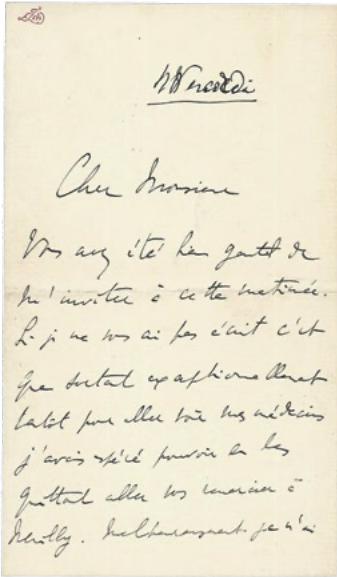 Mercredi
Cher Monsieur
Vous avez été bien gentil de
m'inviter à cette matinée.
Si je ne vous ai pas écrit c'est
que sortant exceptionnellement
tantôt pour aller voir mes médecins
j'avais espéré pouvoir en les
quittant aller vous remercier à
Neuilly. Malheureusement je n'ai